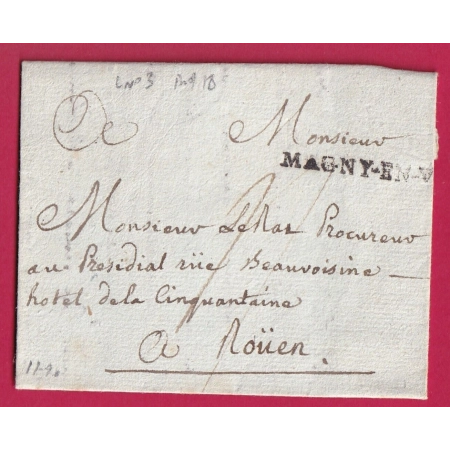 L n° 3 Por 18
De Monsieur
MAGNY-EN-V
Monsieur LeNaz Procureur
au Presidial rüe Beauvoisine
hotel de la Cinquantaine
A Roüen.